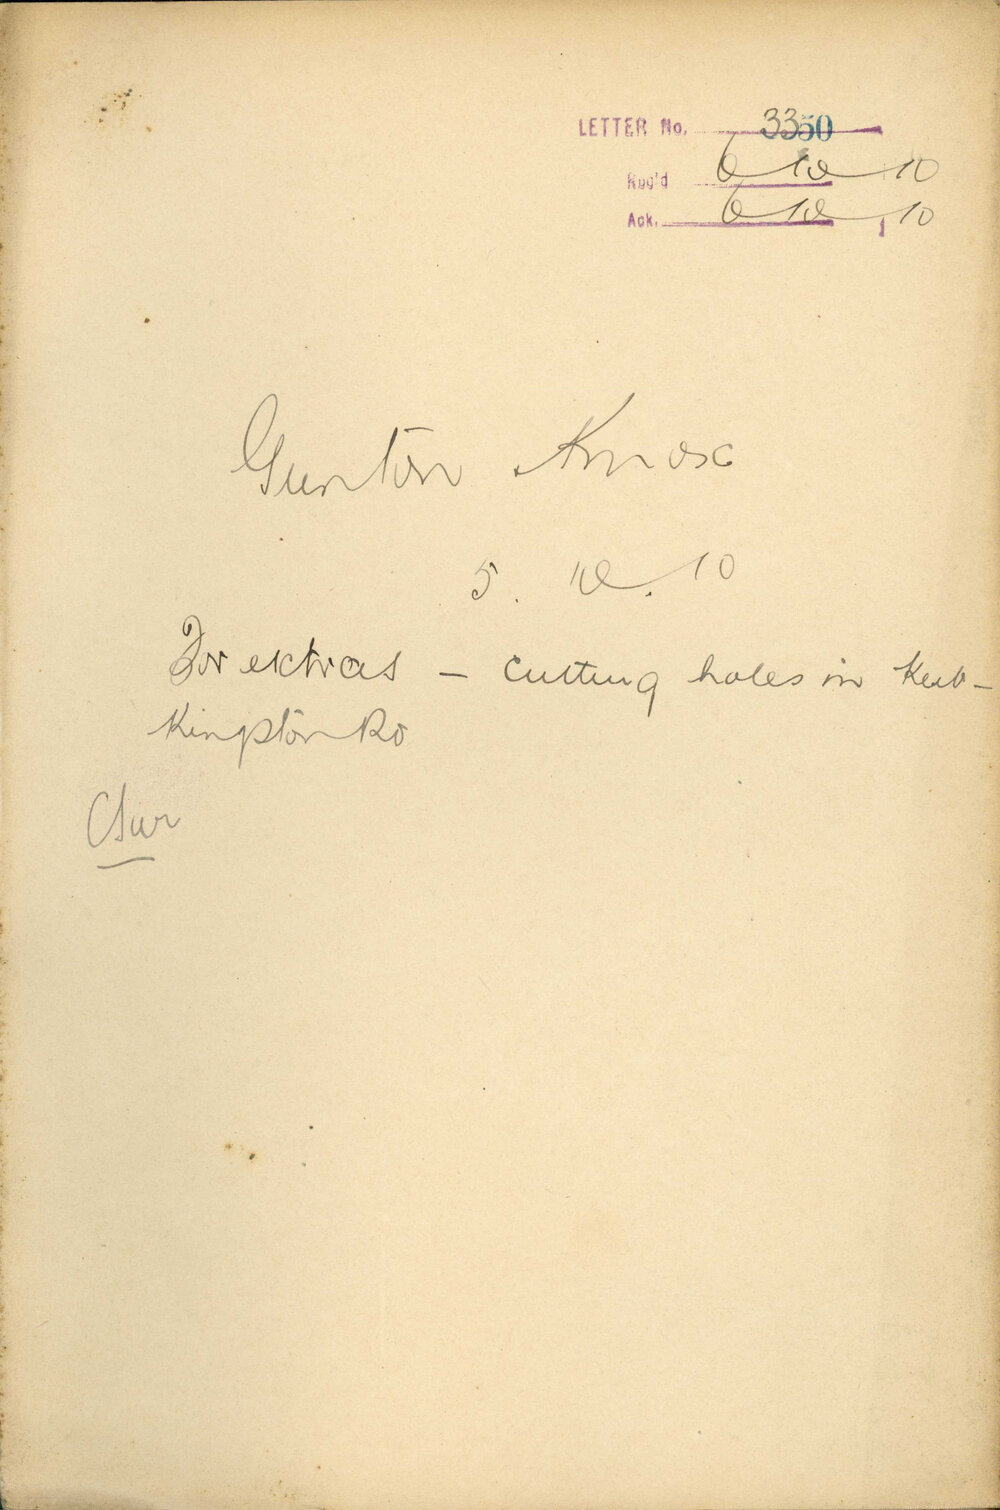 LETTER No. 3350
Reg'd 6 10 10
Ack. 6 10 10
Gunton Knox
5. 10. 10
For extras - cutting holes in Kerb -
Kingston Rd